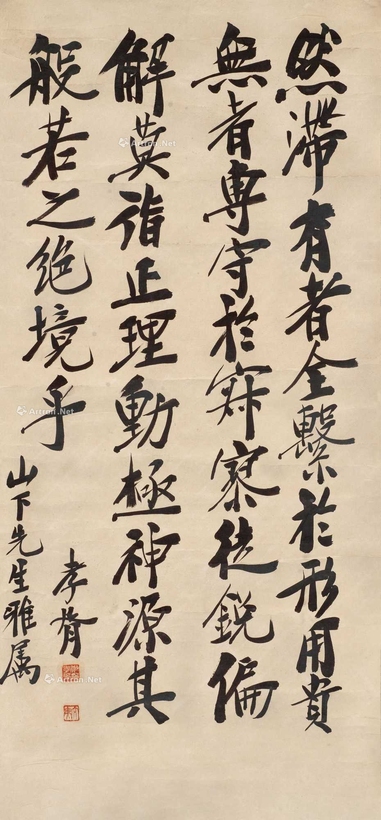 然滯有者全繫於形用貴
無者專守於寂寥徒銳偏
解莫詣正理動極神源其
般若之絕境乎
山下先生雅属
孝胥
Artron.Net
Artron.Net
Artron.Net
Artron.Net